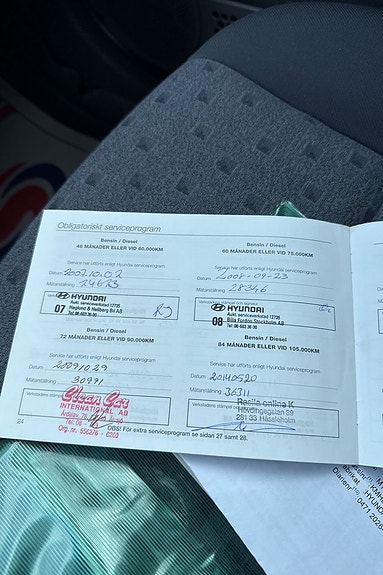 Obligatoriskt serviceprogram
Bensin / Diesel
48 MÅNADER ELLER VID 60.000KM
Service har utförts enligt Hyundai serviceprogram
Datum 2007.10.02
Mätarställning 24673
HYUNDAI
Aukt. serviceverkstad 12735
07 Haglund & Hellberg Bil AB
Tel: 08-503 36 00
Bensin / Diesel
60 MÅNADER ELLER VID 75.000KM
Service har utförts enligt Hyundai serviceprogram
Datum 2008-09-23
Mätarställning 28346
Verkstadens stämpel och signatur
HYUNDAI
Aukt. serviceverkstad 12735
08 Bilia Fordon Stockholm AB
Tel: 08-503 36 00
72 MÅNADER ELLER VID 90.000KM
Service har utförts enligt Hyundai serviceprogram
Datum 20091029
Mätarställning 30991
Clean Car
INTERNATIONAL AB
Org. nr. 556376 - 6203
Bensin / Diesel
84 MÅNADER ELLER VID 105.000KM
Service har utförts enligt Hyundai serviceprogram
Datum 20140520
Mätarställning 36311
Verkstadens stämpel
Rasila online K
Hövdingegatan 39
281 33 Hässleholm
24
OBS! För extra serviceprogram se sidan 27 samt 28.
HYUNDAI
Diarienr: 0471 2026